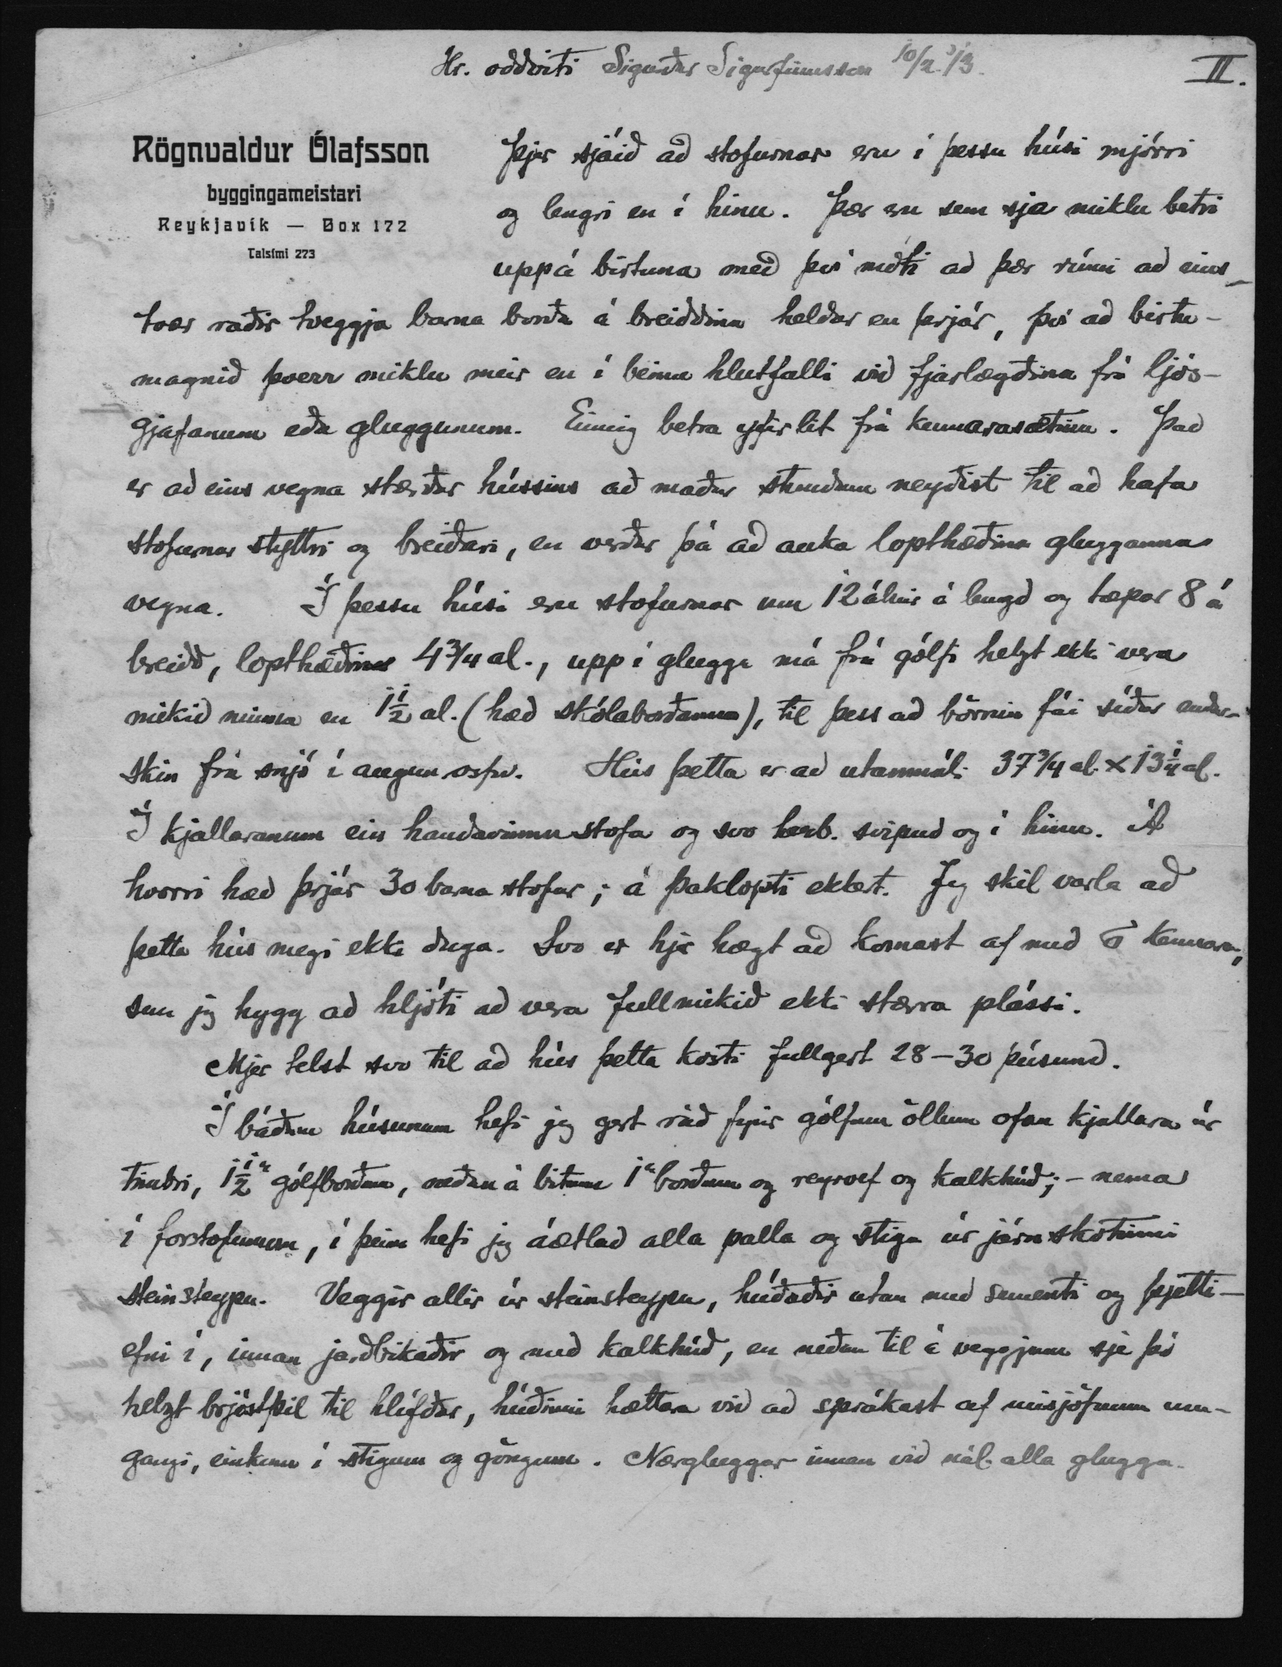 Hr. oddviti Sigurður Sigurfinnsson 10/2 '13.
II.
Rögnvaldur Ólafsson
byggingameistari
Reykjavík — Box 172
Talsími 273
Þjer sjáið að stofurnar eru í þessu húsi mjórri
og lengri en í hinu. Þær eru sem sja miklu betri
uppá birtuna með því móti að þær rúmi að eins
tvær raðir tveggja barna borða á breiddina heldur en þrjár, því að birtu-
magnið þverr miklu meir en í beinu hlutfalli við fjarlægðina frá ljós-
gjafanum eða gluggunum. Einnig betra yfirlit frá kennarasætinu. Það
er að eins vegna stærðar hússins að maður stundum neyðist til að hafa
stofurnar styttri og breiðari, en verður þá að auka lopthæðina glugganna
vegna. Í þessu húsi eru stofurnar um 12 álnir á lengd og tæpar 8 á
breidd, lopthæðin 4¾ al., upp í glugga má frá gólfi helzt ekki vera
mikið minna en 1½ al. (hæð skólaborðanna), til þess að börnin fái síður endur-
skin frá snjó í augun osfrv. Hús þetta er að utanmáli 37¾ al. × 13¼ al.
Í kjallaranum ein handavinnustofa og svo herb. svipuð og í hinu. Á
hvorri hæð þrjár 30 barna stofur; á þaklopti ekkert. Jeg skil varla að
þetta hús megi ekki duga. Svo er hjer hægt að komast af með 6 kennara,
sem jeg hygg að hljóti að vera fullmikið ekki stærra plássi.
Mjer telst svo til að hús þetta kosti fullgert 28–30 þúsund.
Í báðum húsunum hefi jeg gert ráð fyrir gólfum öllum ofan kjallara úr
timbri, 1½" gólfborðum, neðan á bitum 1" borðum og reyrvef og kalkhúð; – nema
í forstofunum, í þeim hefi jeg áætlað alla palla og stiga úr járnskotinni
steinsteypu. Veggir allir úr steinsteypu, húðaðir utan með sementi og þjetti-
efni í, innan jarðbikaðir og með kalkhúð, en neðan til á veggjum sje þó
helzt brjóstþil til hlífðar, húðinni hættara við að sprákast af misjöfnum um-
gangi, einkum í stigum og göngum. Nærgluggar innan við nál. alla glugga.